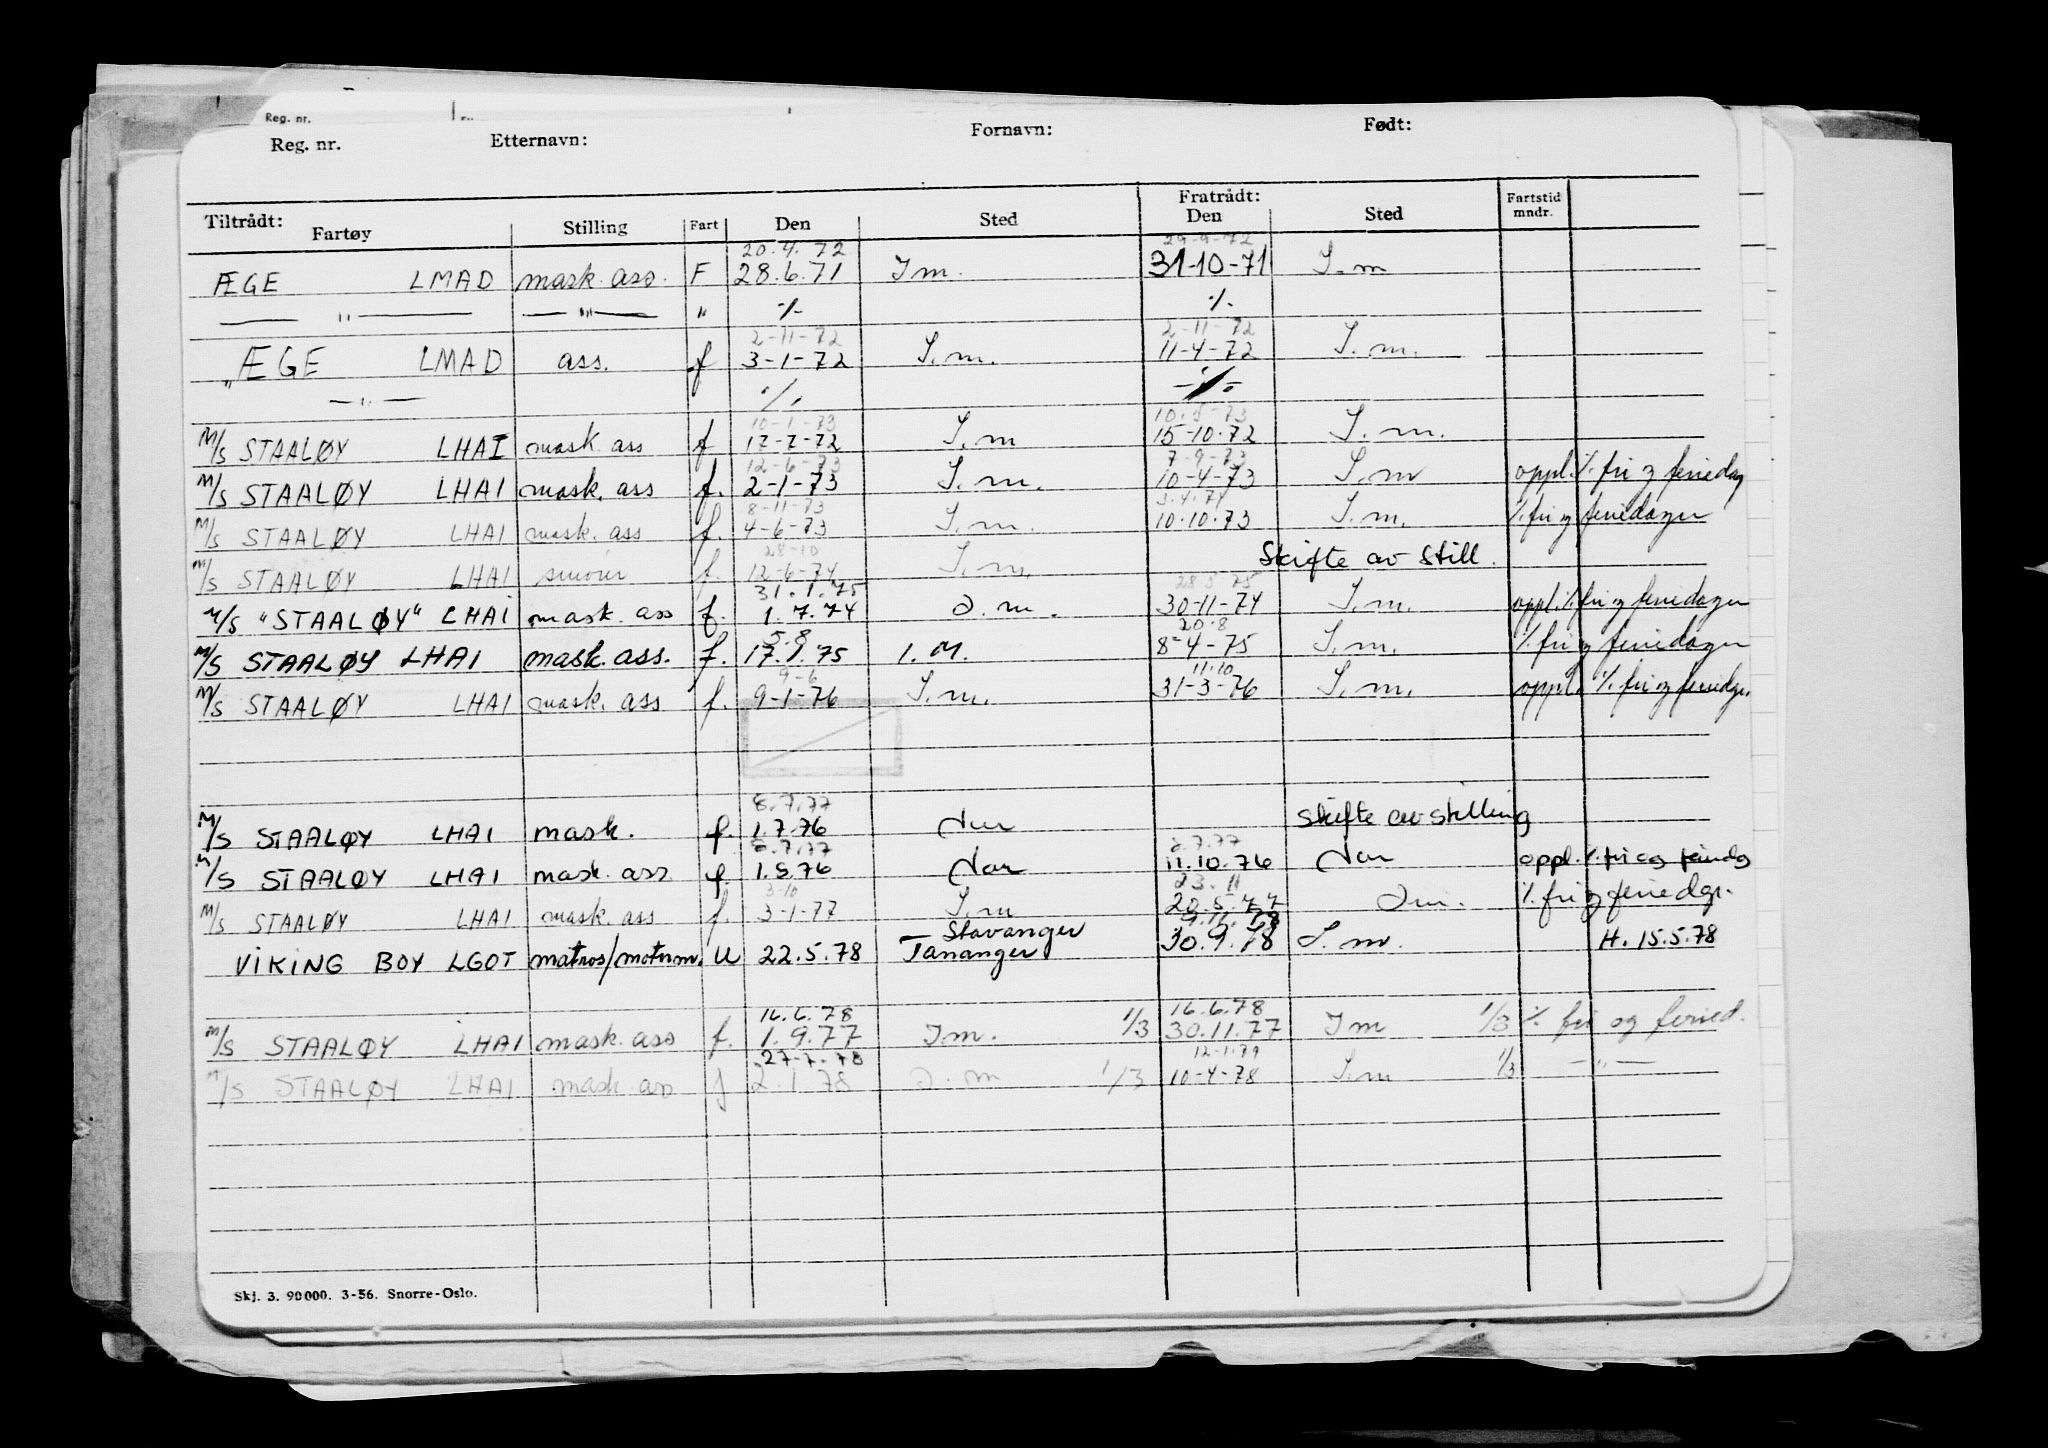 Reg. nr.
Reg. nr. Etternavn: Fornavn: Født:
Tiltrådt: Fratrådt: Fartstid
Fartøy Stilling Fart Den Sted Den Sted mndr.
20.4.72 29-9-72
ÆGE LMAD mask. ass. F 28.6.71 I m. 31-10-71 I. m
—— " —— —— " —— " % %
2-11-72 2-11-72
ÆGE LMAD ass. f 3-1-72 I. m. 11-4-72 I. m.
— " — % %
10-1-73 10.5-73
M/S STAALØY LHAI mask ass f 17-7-72 I. m 15-10.72 I. m.
12-6-73 7-9-73
M/S STAALØY LHAI mask. ass f. 2-1-73 I. m. 10-4-73 I. m oppl. % fri og feriedag
8-11-73 3.4.74
M/S STAALØY LHAI mask. ass f. 4-6-73 I. m. 10.10.73 I. m. % fri og feriedager
28-10
M/S STAALØY LHAI smører f. 12-6-74 I. m. Skifte av still.
31.1.75 28.5.75
M/S "STAALØY" LHAI mask. ass f. 1.7.74 I. m. 30-11-74 I. m. oppl. % fri og feriedager
5.8 20.8
M/S STAALØY LHAI mask. ass. f. 17.1.75 I. M. 8-4-75 I. m. % fri og feriedager
9-6 11.10
M/S STAALØY LHAI mask. ass f. 9-1-76 I. m. 31-3-76 I. m. oppl. % fri og feriedgr.
8.7.77
M/S STAALØY LHAI mask. f. 1.7.76 Nor Skifte av stilling
8.7.77 2.7.77
M/S STAALØY LHAI mask. ass f. 1.5.76 Nor 11.10.76 Nor oppl. % fri og feriedg
3-10 23.11
M/S STAALØY LHAI mask. ass f. 3-1-77 I. m 20.5.77 I m. % fri og feriedgr.
Stavanger
VIKING BOY LGOT matros/motorm. U 22.5.78 Tananger 30.9.78 I. m. H. 15.5.78
16.6.78 16.6.78
M/S STAALØY LHAI mask. ass f. 1.9.77 I m. 1/3 30.11.77 I m 1/3 % fri og feried.
27-7-78 12-1-79
M/S STAALØY LHAI mask. ass f 2.1.78 I. m 1/3 10-4-78 I. m 1/3 — " —
Skj. 3. 90000. 3-56. Snorre-Oslo.